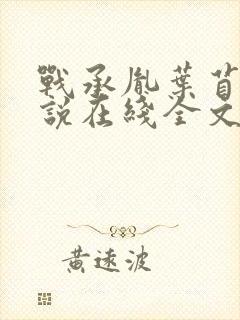 戰承胤葉苜
說在綫全文
黃遠波